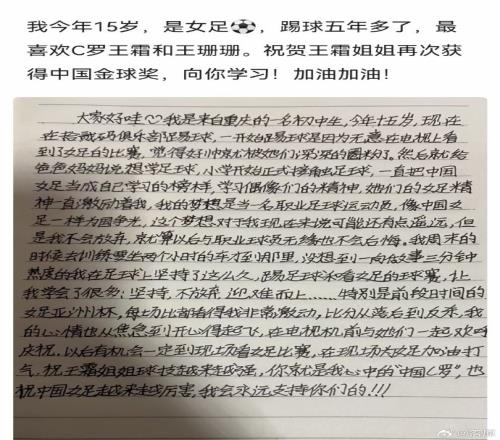 我今年15岁，是女足⚽，踢球五年多了，最
喜欢C罗王霜和王珊珊。祝贺王霜姐姐再次获
得中国金球奖，向你学习！加油加油！
大家好哇♡我是来自重庆的一名初中生，今年十五岁，现
在在拾戴码俱乐部踢球，一开始踢球是因为无意在电视上看
到了女足的比赛，觉得好帅就被她们深深的圈粉了。然后就给
爸爸妈妈说想学足球，小学开始正式接触出足球，一直把中国
女足当成自己学习的榜样，学习偶像们的精神，她们的女足精
神一直激励着我，我的梦想是当一名职业足球运动员，像中国女
足一样为国争光，这个梦想对于我现在来说可能还有点遥远，但
是我不会放弃，就算以后与职业球员无缘也不会后悔。我周末的
时候去训练要坐两个小时的车才到那里，没想到一向做事三分钟
热度的我在足球上坚持了这么久，踢足球和看女足的球赛，让
我学会了很多：坚持，不放弃，迎难而上……特别是前段时间的
女足亚洲杯，每场比都看得我非常激动，比分从落后到反杀，我
的心情也从焦急到开心得起飞，在电视机前与她们一起欢呼
庆祝，以后有机会一定到现场看女足比赛，在现场为女足加油打
气，祝王霜姐姐球技越来越强，你就是我心中的“中国C罗”，也
祝中国女足越来越厉害，我会永远支持你们的!!!